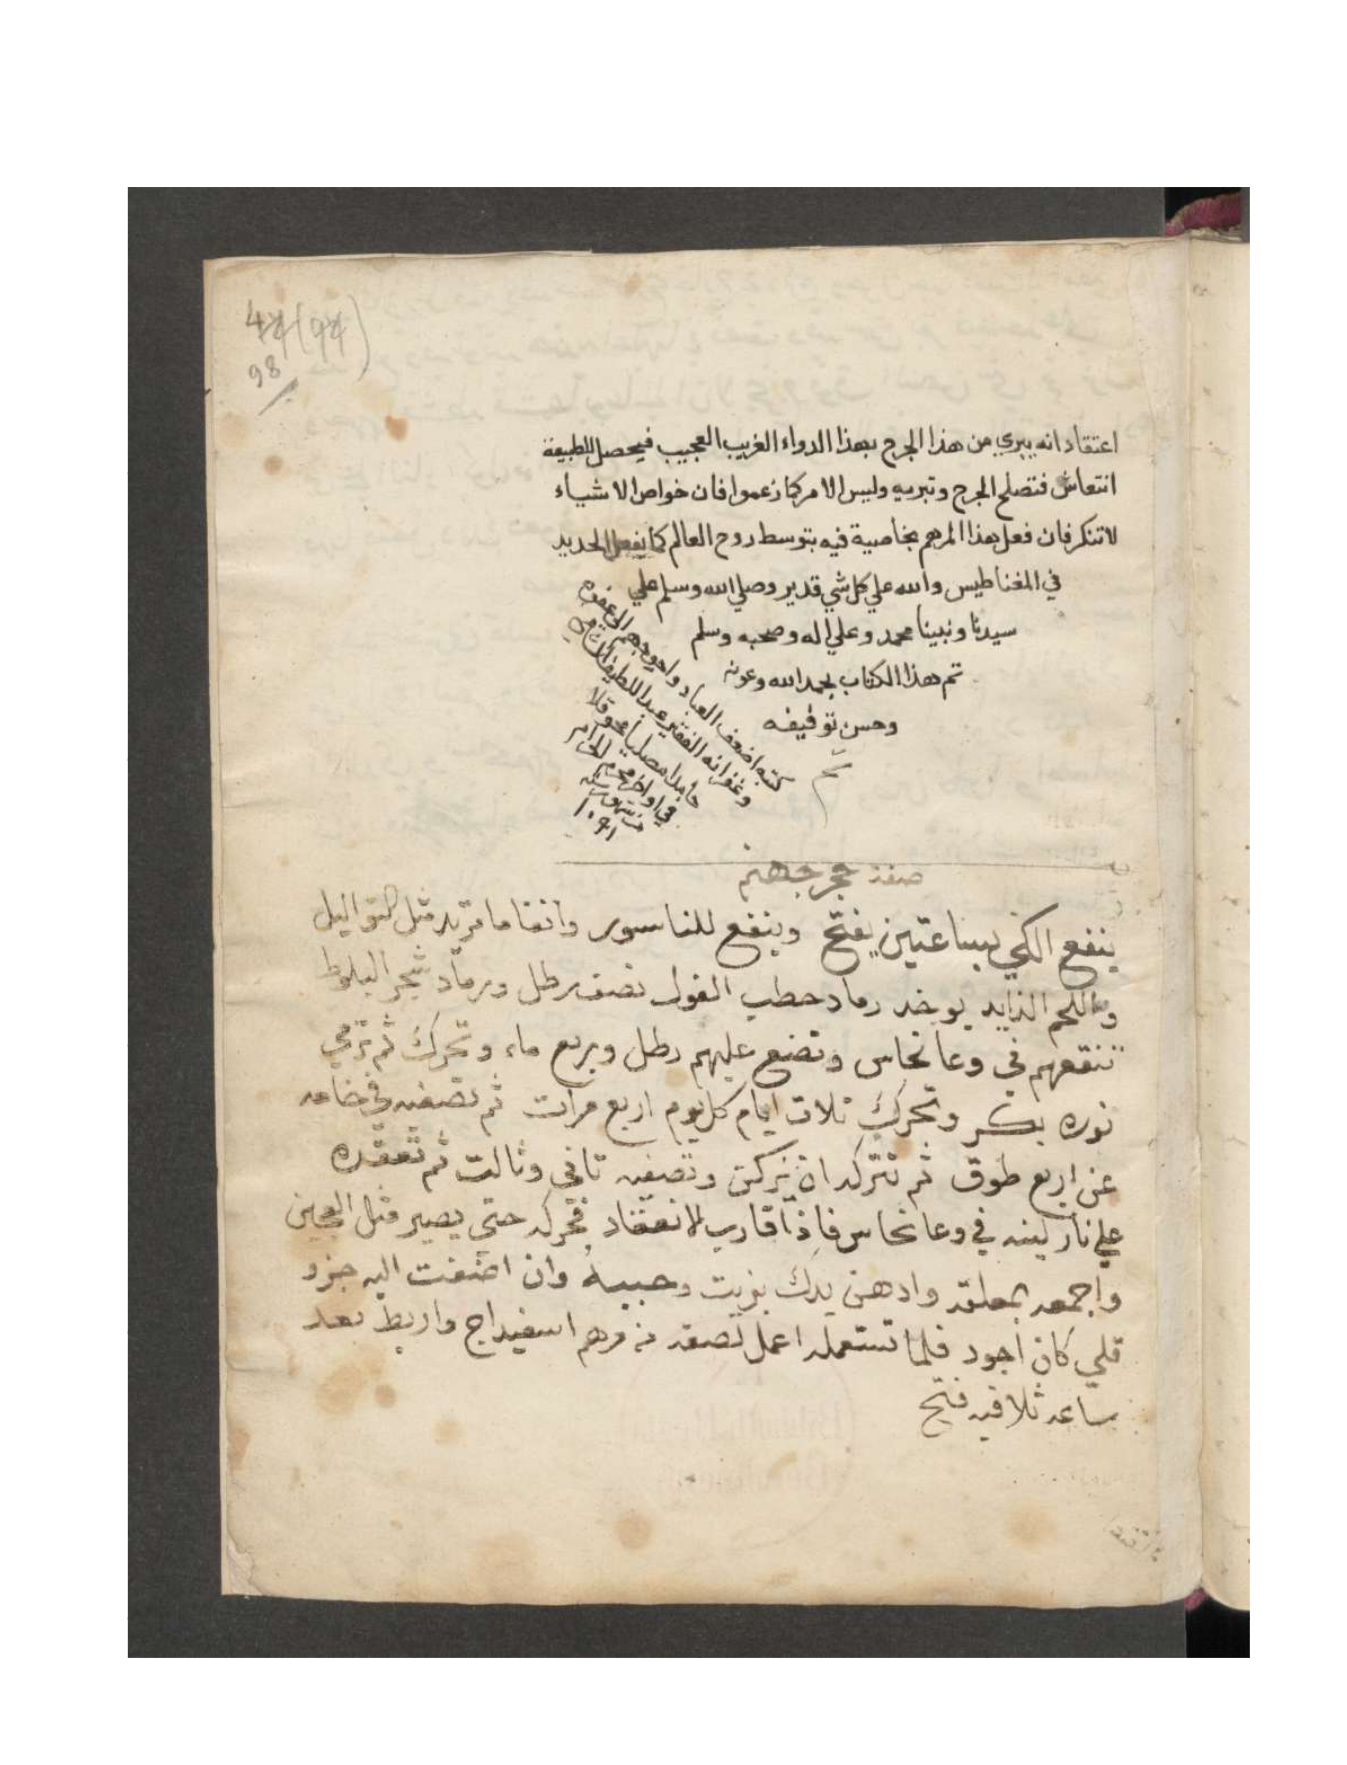 44 (94)
98
اعتقاد انه يبري من هذا الجرح بهذا الدواء الغريب العجيب فيحصل للطبيعة
انتعاش فتصلح الجرح وتبريه وليس الامر كما زعموا فان خواص الاشياء
لاتنكر فان فعل هذا المرهم بخاصية فيه بتوسط روح العالم كما يفعل الحديد
في المغناطيس والله علي كل شي قدير وصلي الله وسلم علي
سيدنا ونبينا محمد وعلي اله وصحبه وسلم
تم هذا الكتاب بحمد الله وعونه
وحسن توفيقه
تم
كتبه اضعف العباد واحوجهم الي عفوه
وغفرانه الفقير عبد اللطيف
حامدا مصليا محوقلا
في اواخر محرم الحرام
من شهور سنة
١٠٩١
صفة حجر جهنم
ينفع الكي بساعتين يفتح وينفع للناسور وانفا ما تريد مثل التواليل
واللحم الزايد يوخد رماد حطب الفول نصف رطل ورماد شجر البلوط
تنقعهم في وعا نحاس وتضع عليهم رطل وربع ماء وتحرك ثم ترمي
نوره بكر وتحرك تلات ايام كل يوم اربع مرات ثم تصفيه في خامه
عن اربع طوق ثم تتركه ان يركن وتصفيه تاني وثالت ثم تعقده
علي نار لينه في وعا نحاس فاذا قارب الانعقاد فحركه حتي يصير مثل العجين
واجمعه بمعلقه وادهن يدك بزيت وحببه وان اضفت اليه جزو
قلي كان اجود فلما تستعمله اعمل لصقه من مرهم اسفيداج واربط بعد
ساعه تلاقيه فتح